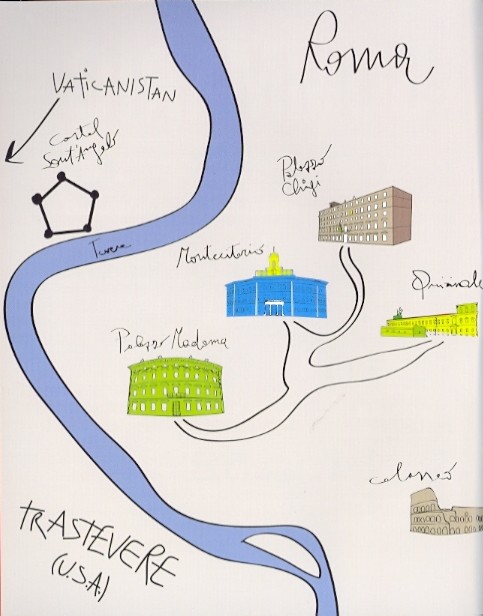 Roma
VATICANISTAN
Castel
Sant'Angelo
Palazzo
Chigi
Tevere
Montecitorio
Quirinale
Palazzo Madama
colosseo
TRASTEVERE
(U.S.A.)